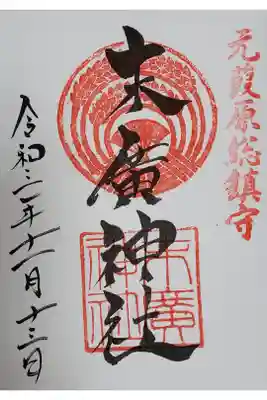 元葭原総鎮守
末廣神社
末廣
神社
令和三年十一月十三日